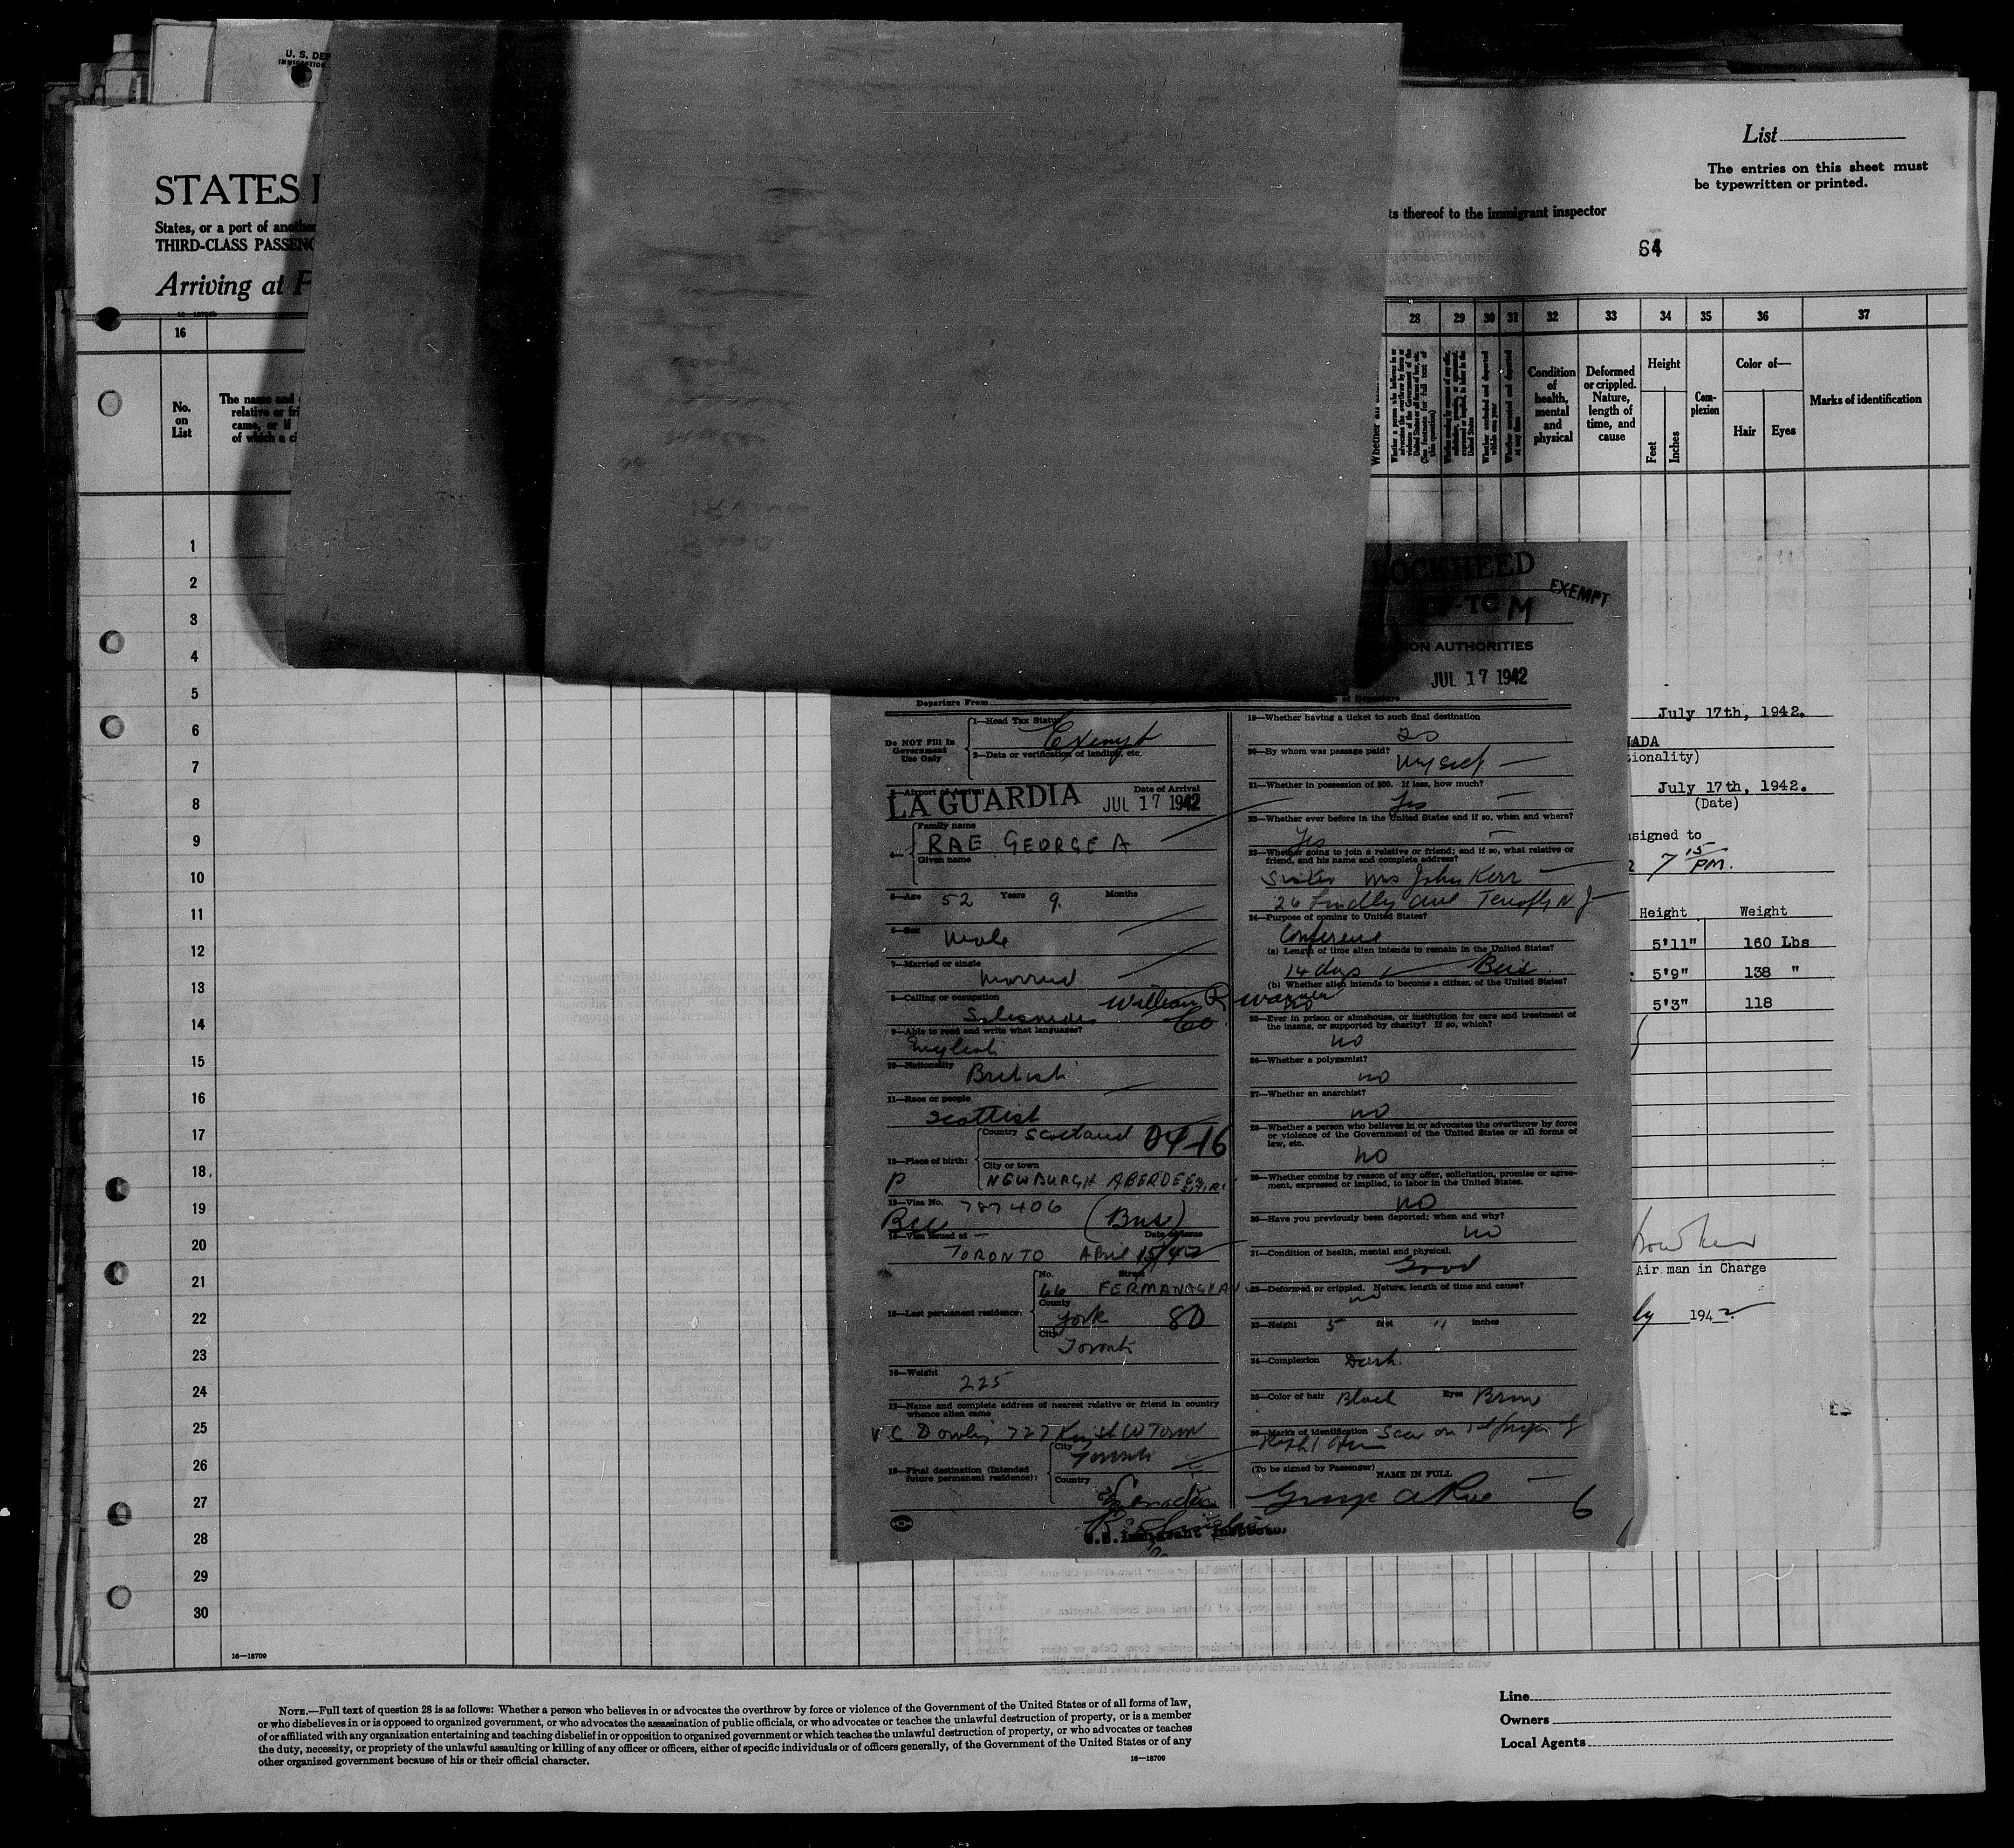 U. S. DEP
IMMIGRATION
List
The entries on this sheet must
be typewritten or printed.
STATES I
States, or a port of another
THIRD-CLASS PASSENG
Arriving at P
ts thereof to the immigrant inspector
64
16
28 29 30 31 32 33 34 35 36 37
No.
on
List
The name and
relative or fri
came, or if
of which a c
Condition
of
health,
mental
and
physical
Deformed
or crippled.
Nature,
length of
time, and
cause
Height
Feet
Inches
Com-
plexion
Color of—
Hair
Eyes
Marks of identification
1
2
3
4
5
6
7
8
9
10
11
12
13
14
15
16
17
18
19
20
21
22
23
24
25
26
27
28
29
30
16—18709
LOCKHEED
EXEMPT
-TC M
ION AUTHORITIES
JUL 17 1942
Departure From
Do NOT Fill In
Government
Use Only
1—Head Tax Status
Exempt
2—Date or verification of landing, etc.
3—Airport of Arrival
Date of Arrival
LA GUARDIA JUL 17 1942
4—
Family name
RAE GEORGE A
Given name
5—Age 52 Years 9 Months
6—Sex
Male
7—Married or single
Married
8—Calling or occupation
Salesman William R Warner
Co
9—Able to read and write what languages?
English
10—Nationality
British
11—Race or people
Scottish
12—Place of birth:
Country Scotland 04-16
City or town
NEWBURGH ABERDEEN
P
13—Visa No. 787406 (Bus)
14—Visa issued at
Date of Issue
TORONTO April 15/42
15—Last permanent residence:
No. Street
66 FERMANAGH AV
County
York 80
City
Toronto
16—Weight
225
17—Name and complete address of nearest relative or friend in country
whence alien came
V C Dowling 727 King St W Toron
18—Final destination (Intended
future permanent residence):
City
Toronto
Country
Canada
U.S. Immigrant Inspector.
19—Whether having a ticket to such final destination
20—By whom was passage paid?
Myself
21—Whether in possession of $50. If less, how much?
Yes
22—Whether ever before in the United States and if so, when and where?
Yes
23—Whether going to join a relative or friend; and if so, what relative or
friend, and his name and complete address?
Sister Mrs John Kerr
26 Findlay Ave Tenafly N J
24—Purpose of coming to United States?
Conference
(a) Length of time alien intends to remain in the United States?
14 days Bus
(b) Whether alien intends to become a citizen of the United States?
no
25—Ever in prison or almshouse, or institution for care and treatment of
the insane, or supported by charity? If so, which?
no
26—Whether a polygamist?
no
27—Whether an anarchist?
no
28—Whether a person who believes in or advocates the overthrow by force
or violence of the Government of the United States or all forms of
law, etc.
no
29—Whether coming by reason of any offer, solicitation, promise or agree-
ment, expressed or implied, to labor in the United States.
no
30—Have you previously been deported; when and why?
no
31—Condition of health, mental and physical.
Good
32—Deformed or crippled. Nature, length of time and cause?
no
33—Height 5 feet 11 inches
34—Complexion Dark.
35—Color of hair Black Eyes Brown
36—Marks of identification Scar on 1st finger of
Right
(To be signed by Passenger)
NAME IN FULL
George A Rae
6
July 17th, 1942.
NADA
tionality)
July 17th, 1942.
(Date)
signed to
7 15 PM.
Height Weight
5'11" 160 Lbs
5'9" 138 "
5'3" 118
Air man in Charge
ly 1942
NOTE.—Full text of question 28 is as follows: Whether a person who believes in or advocates the overthrow by force or violence of the Government of the United States or of all forms of law,
or who disbelieves in or is opposed to organized government, or who advocates the assassination of public officials, or who advocates or teaches the unlawful destruction of property, or is a member
of or affiliated with any organization entertaining and teaching disbelief in or opposition to organized government or which teaches the unlawful destruction of property, or who advocates or teaches
the duty, necessity, or propriety of the unlawful assaulting or killing of any officer or officers, either of specific individuals or of officers generally, of the Government of the United States or of any
other organized government because of his or their official character.
16—18709
Line
Owners
Local Agents